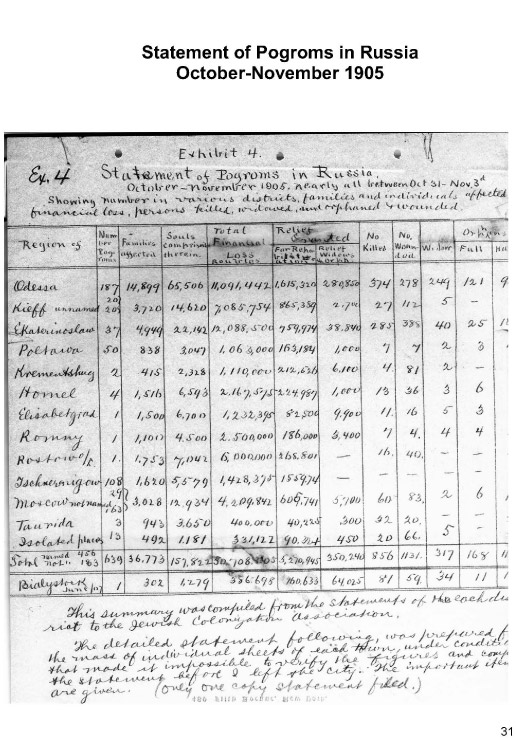 Statement of Pogroms in Russia
October-November 1905
Exhibit 4.
Ex. 4 Statement of Pogroms in Russia
October-November 1905, nearly all between Oct 31-Nov. 3d
Showing number in various districts, families and individuals affected
financial loss, persons killed, widowed, and orphaned & wounded.
Region of Number Pogroms Families affected Souls comprised therein. Total Financial Loss Roubles Relief Granted For Rehabilitation Relief Widows & Orph. No Killed No. Wounded. Widows Orphans Full Ha
Odessa 187 14,899 65,506 11,091,442 1,615,320 280,850 374 278 249 121 9
Kieff unnamed 20 3,720 14,620 7,085,754 865,359 2,700 27 112 5 -
Ekaterinoslaw 37 4,949 22,142 12,088,500 759,974 38,840 285 338 40 25
Poltawa 50 838 3,047 163,184 1,000 7 7 2 3
Krementshug 2 415 2,328 1,110,000 212,636 6,100 4 81 2 -
Homel 4 1,516 6,593 2,167,575 224,987 1,000 13 36 3 6
Elisabetgrad 1 1,500 6,700 1,232,395 82,500 9,900 11. 16 5 3
Romny 1 1,100 4,500 2,500,000 186,000 3,400 7 4. 4 4
Rostow o/c. 1. 1,753 7,042 6,000,000 268,801 - 16. 40. - -
Tschernigow 108 1,620 5,579 1,428,375 155974 - - - - -
Moscow not named 163 3,028 12,934 4,209,842 5,700 60 83. 2 6
Taurida 3 943 3,650 400,000 40,225 300 22 20. - -
Isolated places 13 492 1,181 331,122 450 20 66. 5 -
Total named 456 not " 183 639 36,773 157,822 350,240 856 1131. 317 168
Bialystock June/07 1 302 1,279 386.698 160,633 64,025 81 59 34 11
This summary was compiled from the statements of the each dis-
rict to the Jewish Colonization Association.
The detailed statement following, was prepared f
the mass of individual sheets of each town, under conditio
that made it impossible to verify the figures and comp
the statement before I left the city. The important item
are given. (only one copy statement filed.)
31